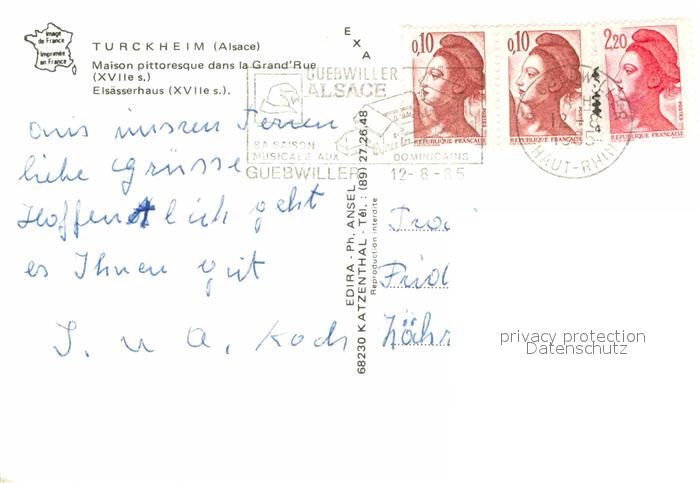 Image
de France
Imprimée
en France
TURCKHEIM (Alsace)
Maison pittoresque dans la Grand'Rue
(XVIIe s.)
Elsässerhaus (XVIIe s.).
EXA
GUEBWILLER
ALSACE
SA SAISON
MUSICALE AUX
DOMINICAINS
GUEBWILLER 12-8-85
HAUT-RHIN
0,10
0,10
2,20
POSTES
POSTES
POSTES
REPUBLIQUE FRANÇAISE
REPUBLIQUE FRANÇAISE
REPUBLIQUE FRANÇAISE
aus unseren Ferien
liebe Grüsse
Hoffentlich geht
es Ihnen gut
J. u A. Koch
EDIRA - Ph. ANSEL
68230 KATZENTHAL - Tél. : (89) 27.26.48
Reproduction interdite
privacy protection
Datenschutz